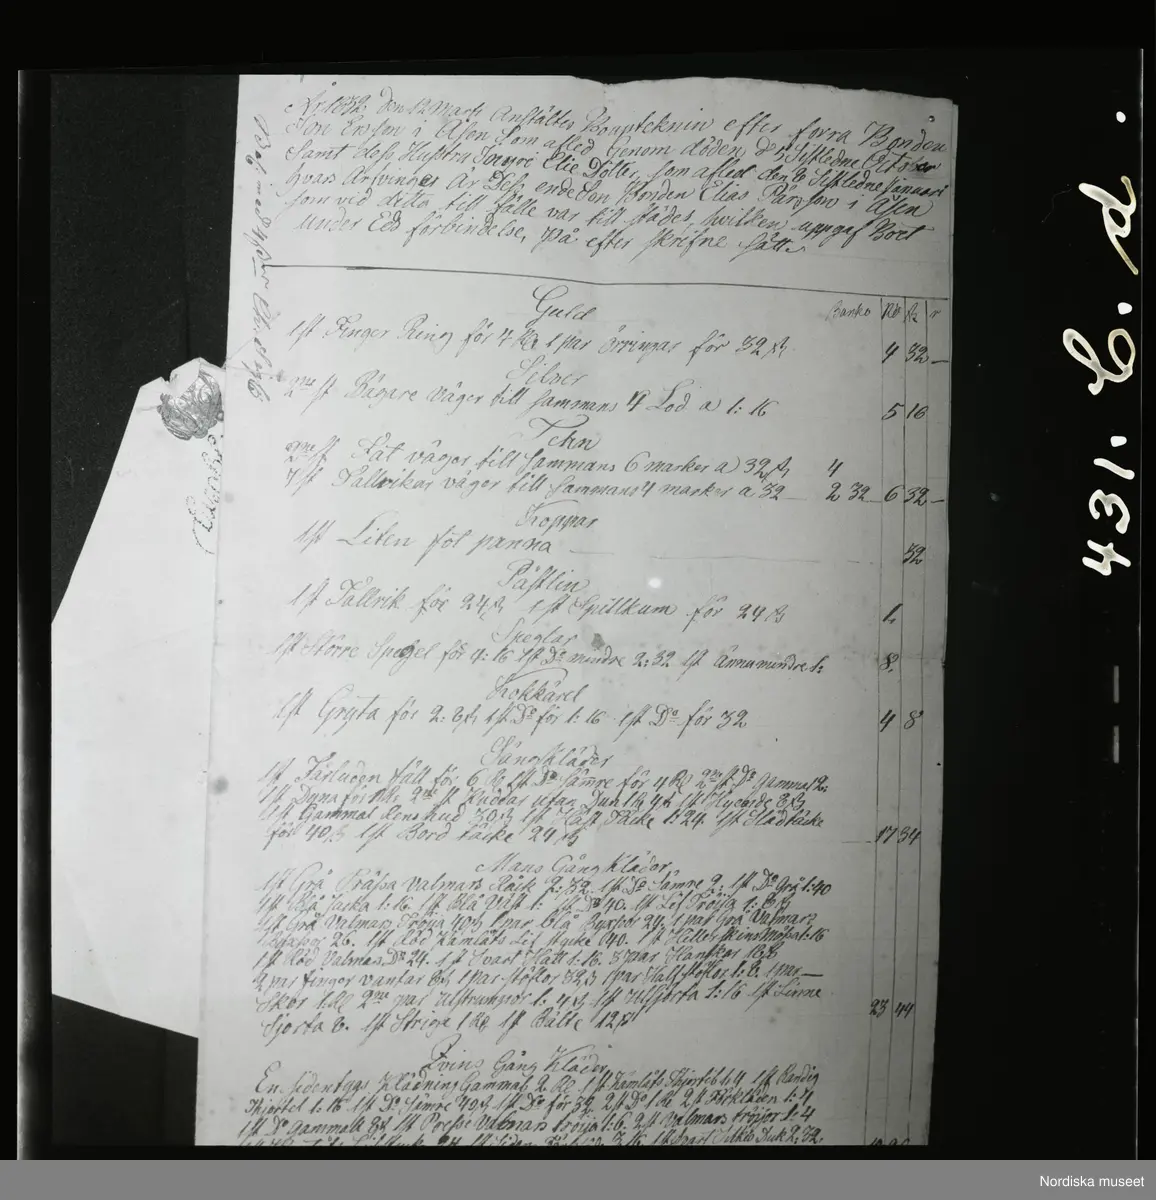 År 1832 den 12 Marti Anstältes Boupteknin efter förra Bonden
Jon Ersson i Åsen Som afled Genom döden d 5 Sistledne October
Samt dess Hustru Ingri Elie Dotter, som afled den 8 Sistledne Januari
hvars Arfvinge Är Deß ende Son Bonden Elias Pärsson i Åsen
som vid detta till fälle var till städes, hvilken uppgaf Boet
under Eds förbindelse, på efter skrifne sätt
Guld Banko Rd ß r
1 st Finger Ring för 4 Rd 1 par örringar för 32 ß 4 32 —
Silver
2ne st Bägare väger till sammans 4 Lod a 1: 16 5 16
Tehn
2ne st Fat väger till Sammans 6 marker a 32 ß 4
7 st Tallrikar väger till Sammans 4 marker a 32 — 2 32 6 32 —
Koppar
1 st Liten föl panna — 32
Påstlin
1 st Tallrik för 24 ß 1 st Spillkum för 24 ß 1
Speglar
1 st Större Spegel för 4: 16 1 st Do mindre 2: 32 1 st ännu mindre 1: 8
Kokkäril
1 st Gryta för 2: 8 ß 1 st Do för 1: 16 1 st Do för 32 4 8
Sängkläder
1 st Fårluden fäll för 6 Rd 1 st Do Sämre för 4 Rd 2ne st Do Gammal 2:
1 st Dyna för 1 Rd 2ne st Kuddar utan Dun 1 Rd 4 ß 1 st Hyende 8 ß
1 st Gammal Renshud 30 ß 1 st Häst Täcke 1: 24 1 st Slädtäcke
för 40 ß 1 st Bord täcke 24 ß — 17 34
Mans Gång Kläder
1 st Grå Prässa Valmars Råck 2: 32 1 st Do Sämre 2: 1 st Do Grå 1: 40
1 st Blå Jacka 1: 16 1 st Blå Väst 1: 1 st Do 40. 1 st Lif Tröija 1: 8 ß
1 st Grå Valmars Tröija 40 ß 1 par blå Byxsor 24. 1 par Grå Valmars
Byxsor 26. 1 st Röd Kamlåts Lif stycke 40. 1 st Hillerskins Mössa 1: 16
1 st Röd Valmars Do 24. 1 st Svart Hatt 1: 16. 3 par Hanskar
2 par finger vantar 8 ß 1 par stöflor 32 ß 1 par Half stöflor 1: 8. 1 par —
Skor 1 Rd 2ne par Ulstrumpor 1: 4 ß 1 st Ulsjorta 1: 16 1 st Linne
Sjorta 1 st Striga 1 Rd 1 st Bälte 12 ß 23 44
Qvins Gång Kläder
En sidentygs Klädning Gammal 2 Rd 1 st Kamlåts Thjortel 1: 4 1 st Randig
Thjortel 1: 16 1 st Do Sämre 40 ß 1 st Do för 32 2 st Do 1 Rd 2 st Förkläden 1: 4
1 st Do Gammalt 8 ß 1 st Presse Valmars Tröija 1: 6. 2 st Valmars tröijor 1: 4
431. C. d.
Nordiska museet